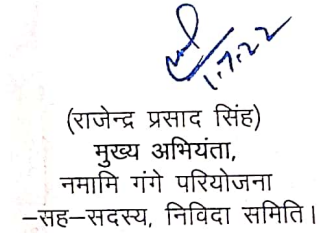 1.7.22
(राजेन्द्र प्रसाद सिंह)
मुख्य अभियंता,
नमामि गंगे परियोजना
–सह–सदस्य, निविदा समिति।